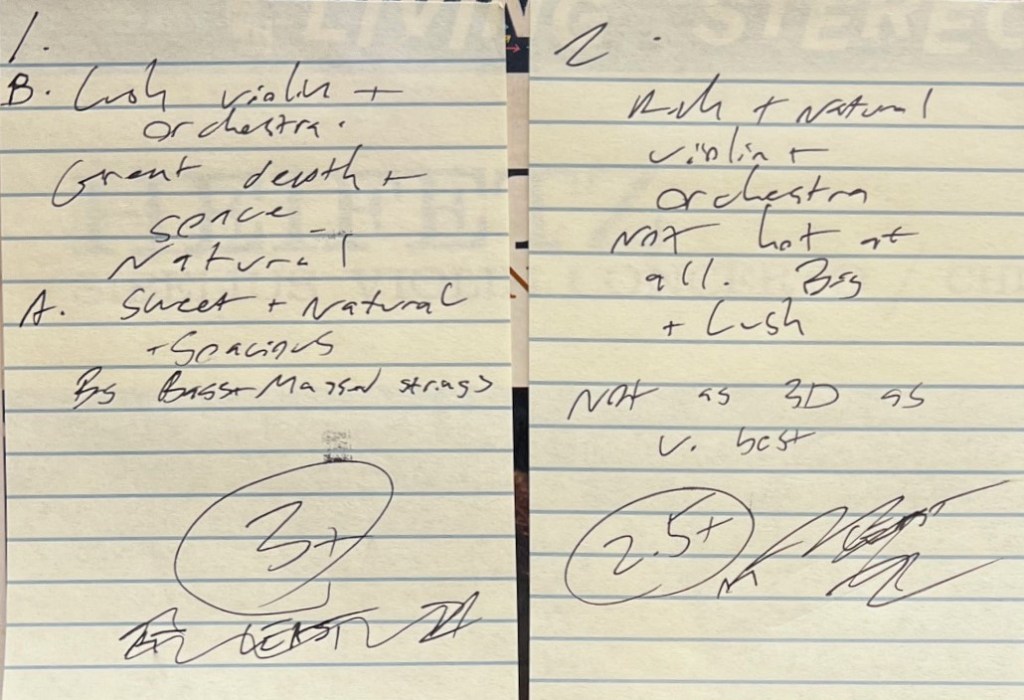 LIVING STEREO
1.
B. Lush violin +
orchestra.
Great depth +
space
Natural
A. Sweet + Natural
+ Spacious
Big Bass + Massed strings
3+
AT LEAST
2.
Rich + Natural
violin +
orchestra
Not hot at
all. Big
+ Lush
Not as 3D as
v. best
2.5+